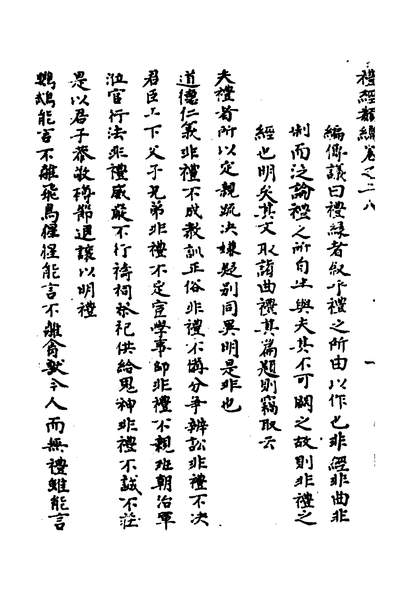 禮經類編卷之二八
編傳議曰禮緣者叙乎禮之所由以作也非經非曲非
制而泛論禮之所自出與夫其不可闕之故則非禮之
經也明矣其文取諸曲禮其篇題則竊取云
夫禮者所以定親疏决嫌疑别同異明是非也
道德仁義非禮不成教訓正俗非禮不備分爭辨訟非禮不决
君臣上下父子兄弟非禮不定宦學事師非禮不親班朝治軍
涖官行法非禮威嚴不行禱祠祭祀供給鬼神非禮不誠不莊
是以君子恭敬撙節退讓以明禮
鸚鵡能言不離飛鳥猩猩能言不離禽獸今人而無禮雖能言